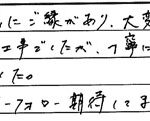 にご縁があり、大変
工事でしたが、丁寧に
た。
ーフォロー期待してま